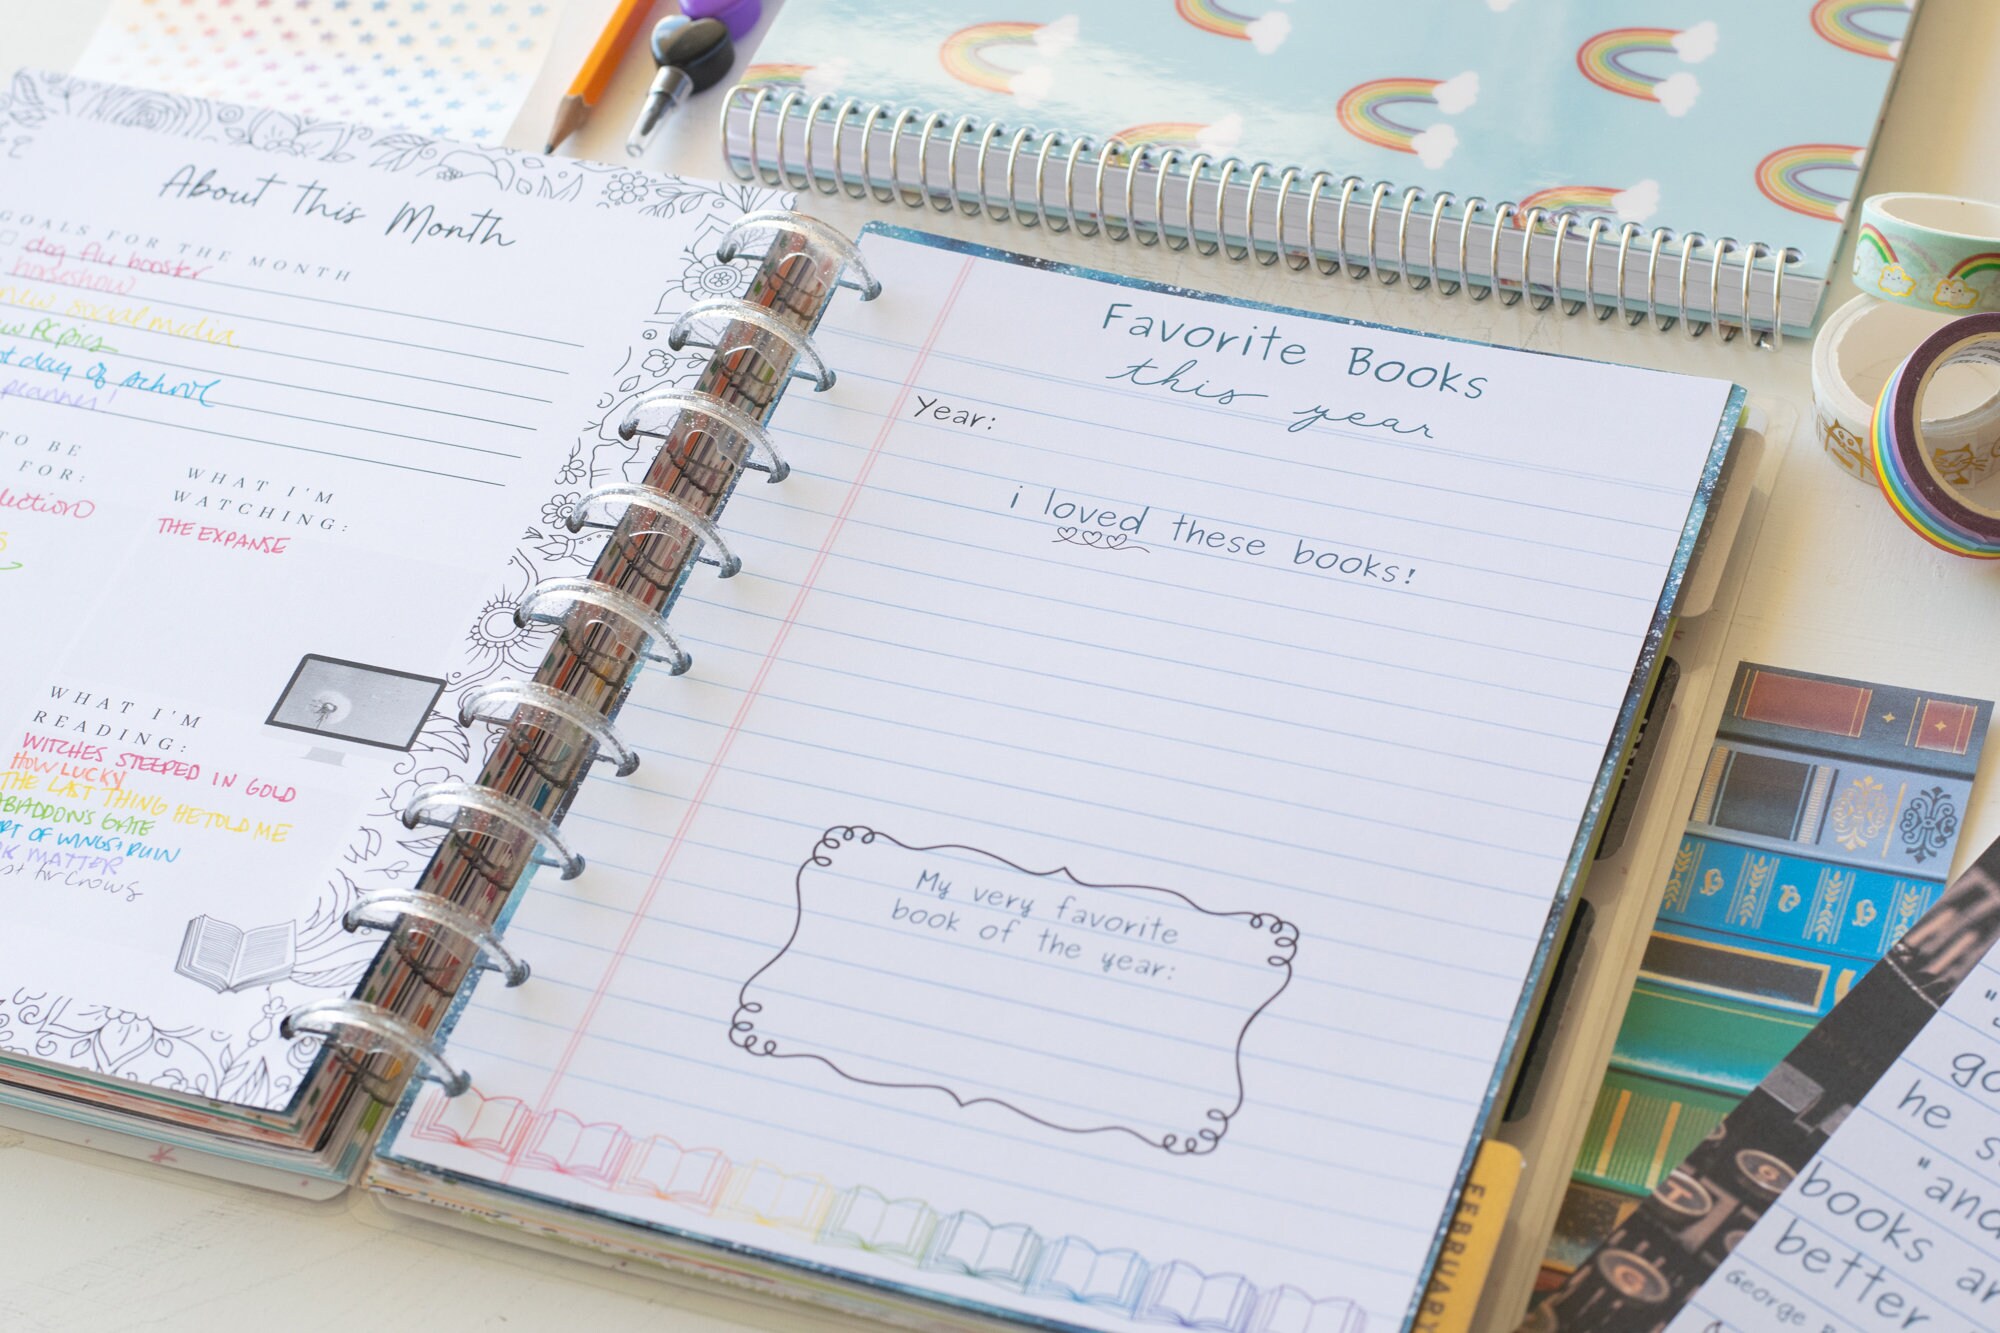 About this Month
GOALS FOR THE MONTH
dog flu booster
horseshow
new social media
PC pics
day of school
planner!
TO BE
FOR:
WHAT I'M
WATCHING:
THE EXPANSE
WHAT I'M
READING:
WITCHES STEEPED IN GOLD
HOW LUCKY
THE LAST THING HE TOLD ME
ABADDON'S GATE
OF WINGS & RUIN
MATTER
for Crows
Favorite Books
this year
Year:
i loved these books!
My very favorite
book of the year:
FEBRUARY
he
"and
books
better
George